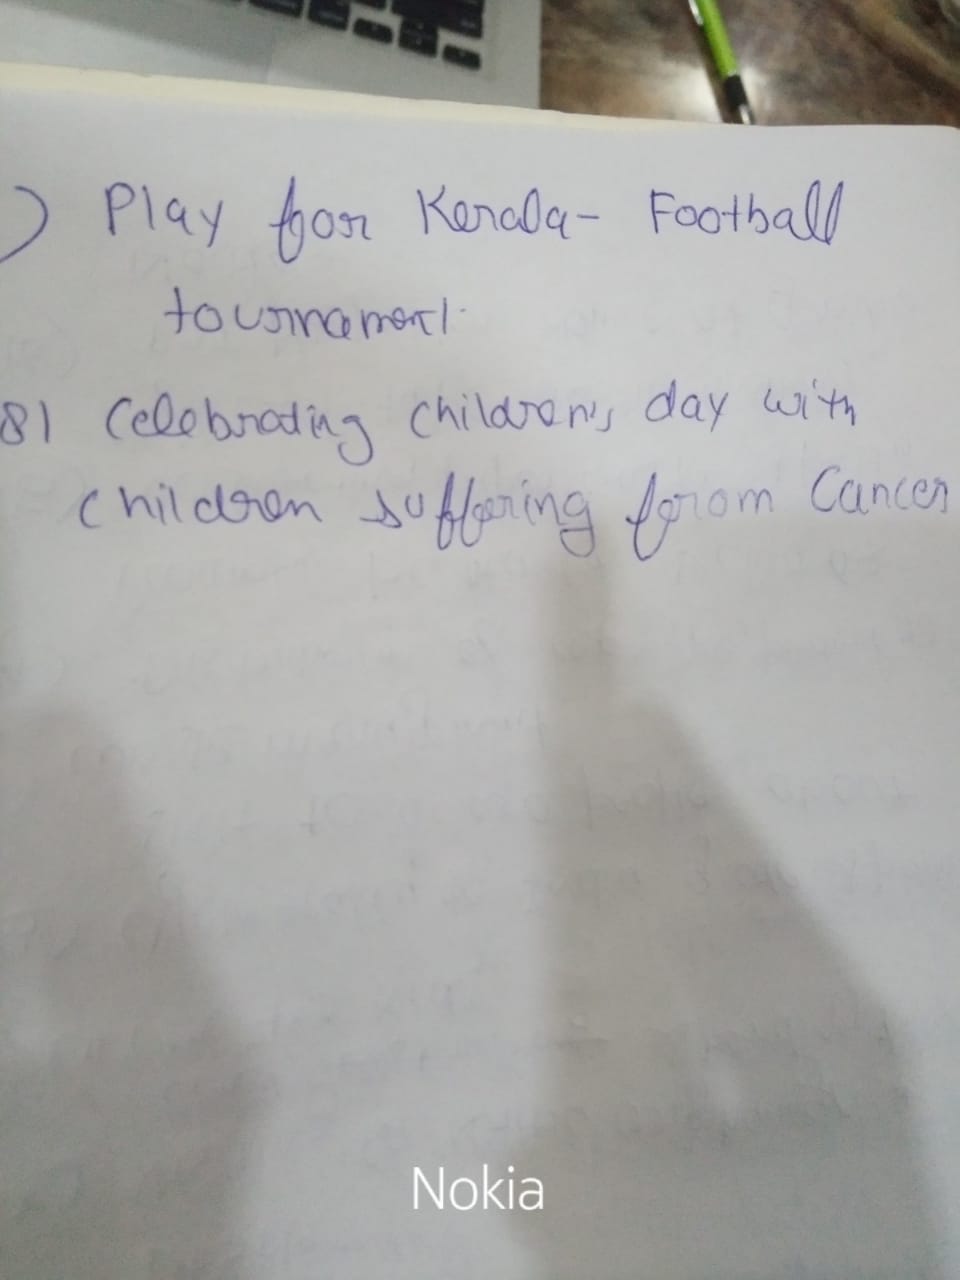 ) Play for Kerala- Football
tournament.
8) Celebrating children's day with
children suffering from Cancer
Nokia